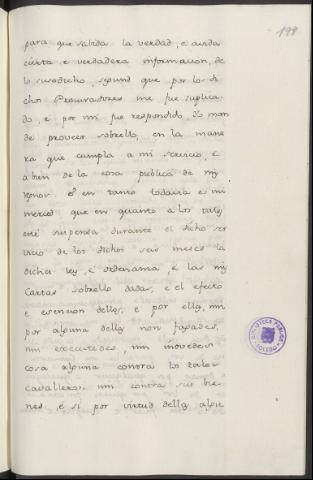 199
para que sabida la verdad, e avida
cierta e verdadera informacion, de
lo susodicho, segund que por los di
chos Procuradores me fue suplica
do, e por mi fue respondido, Yo man
de proveer sobrello, en la mane
ra que cumpla a mi servicio, e
a bien de la cosa publica de mis
Regnos. E en tanto todavia es mi
merced que en quanto a los tales
esté suspensa durante el dicho ser
vicio de los dichos seis meses la
dicha ley, é ordenanza, é las mis
Cartas sobrello dadas, e el efeto
e esecucion dellas, e por ellas, nin
por alguna dellas non fagades,
nin executedes, nin innovedes
cosa alguna contra los tales
cavalleros nin contra sus bie
nes, é si por virtud dellas algu
BIBLIOTECA PUBLICA
TOLEDO